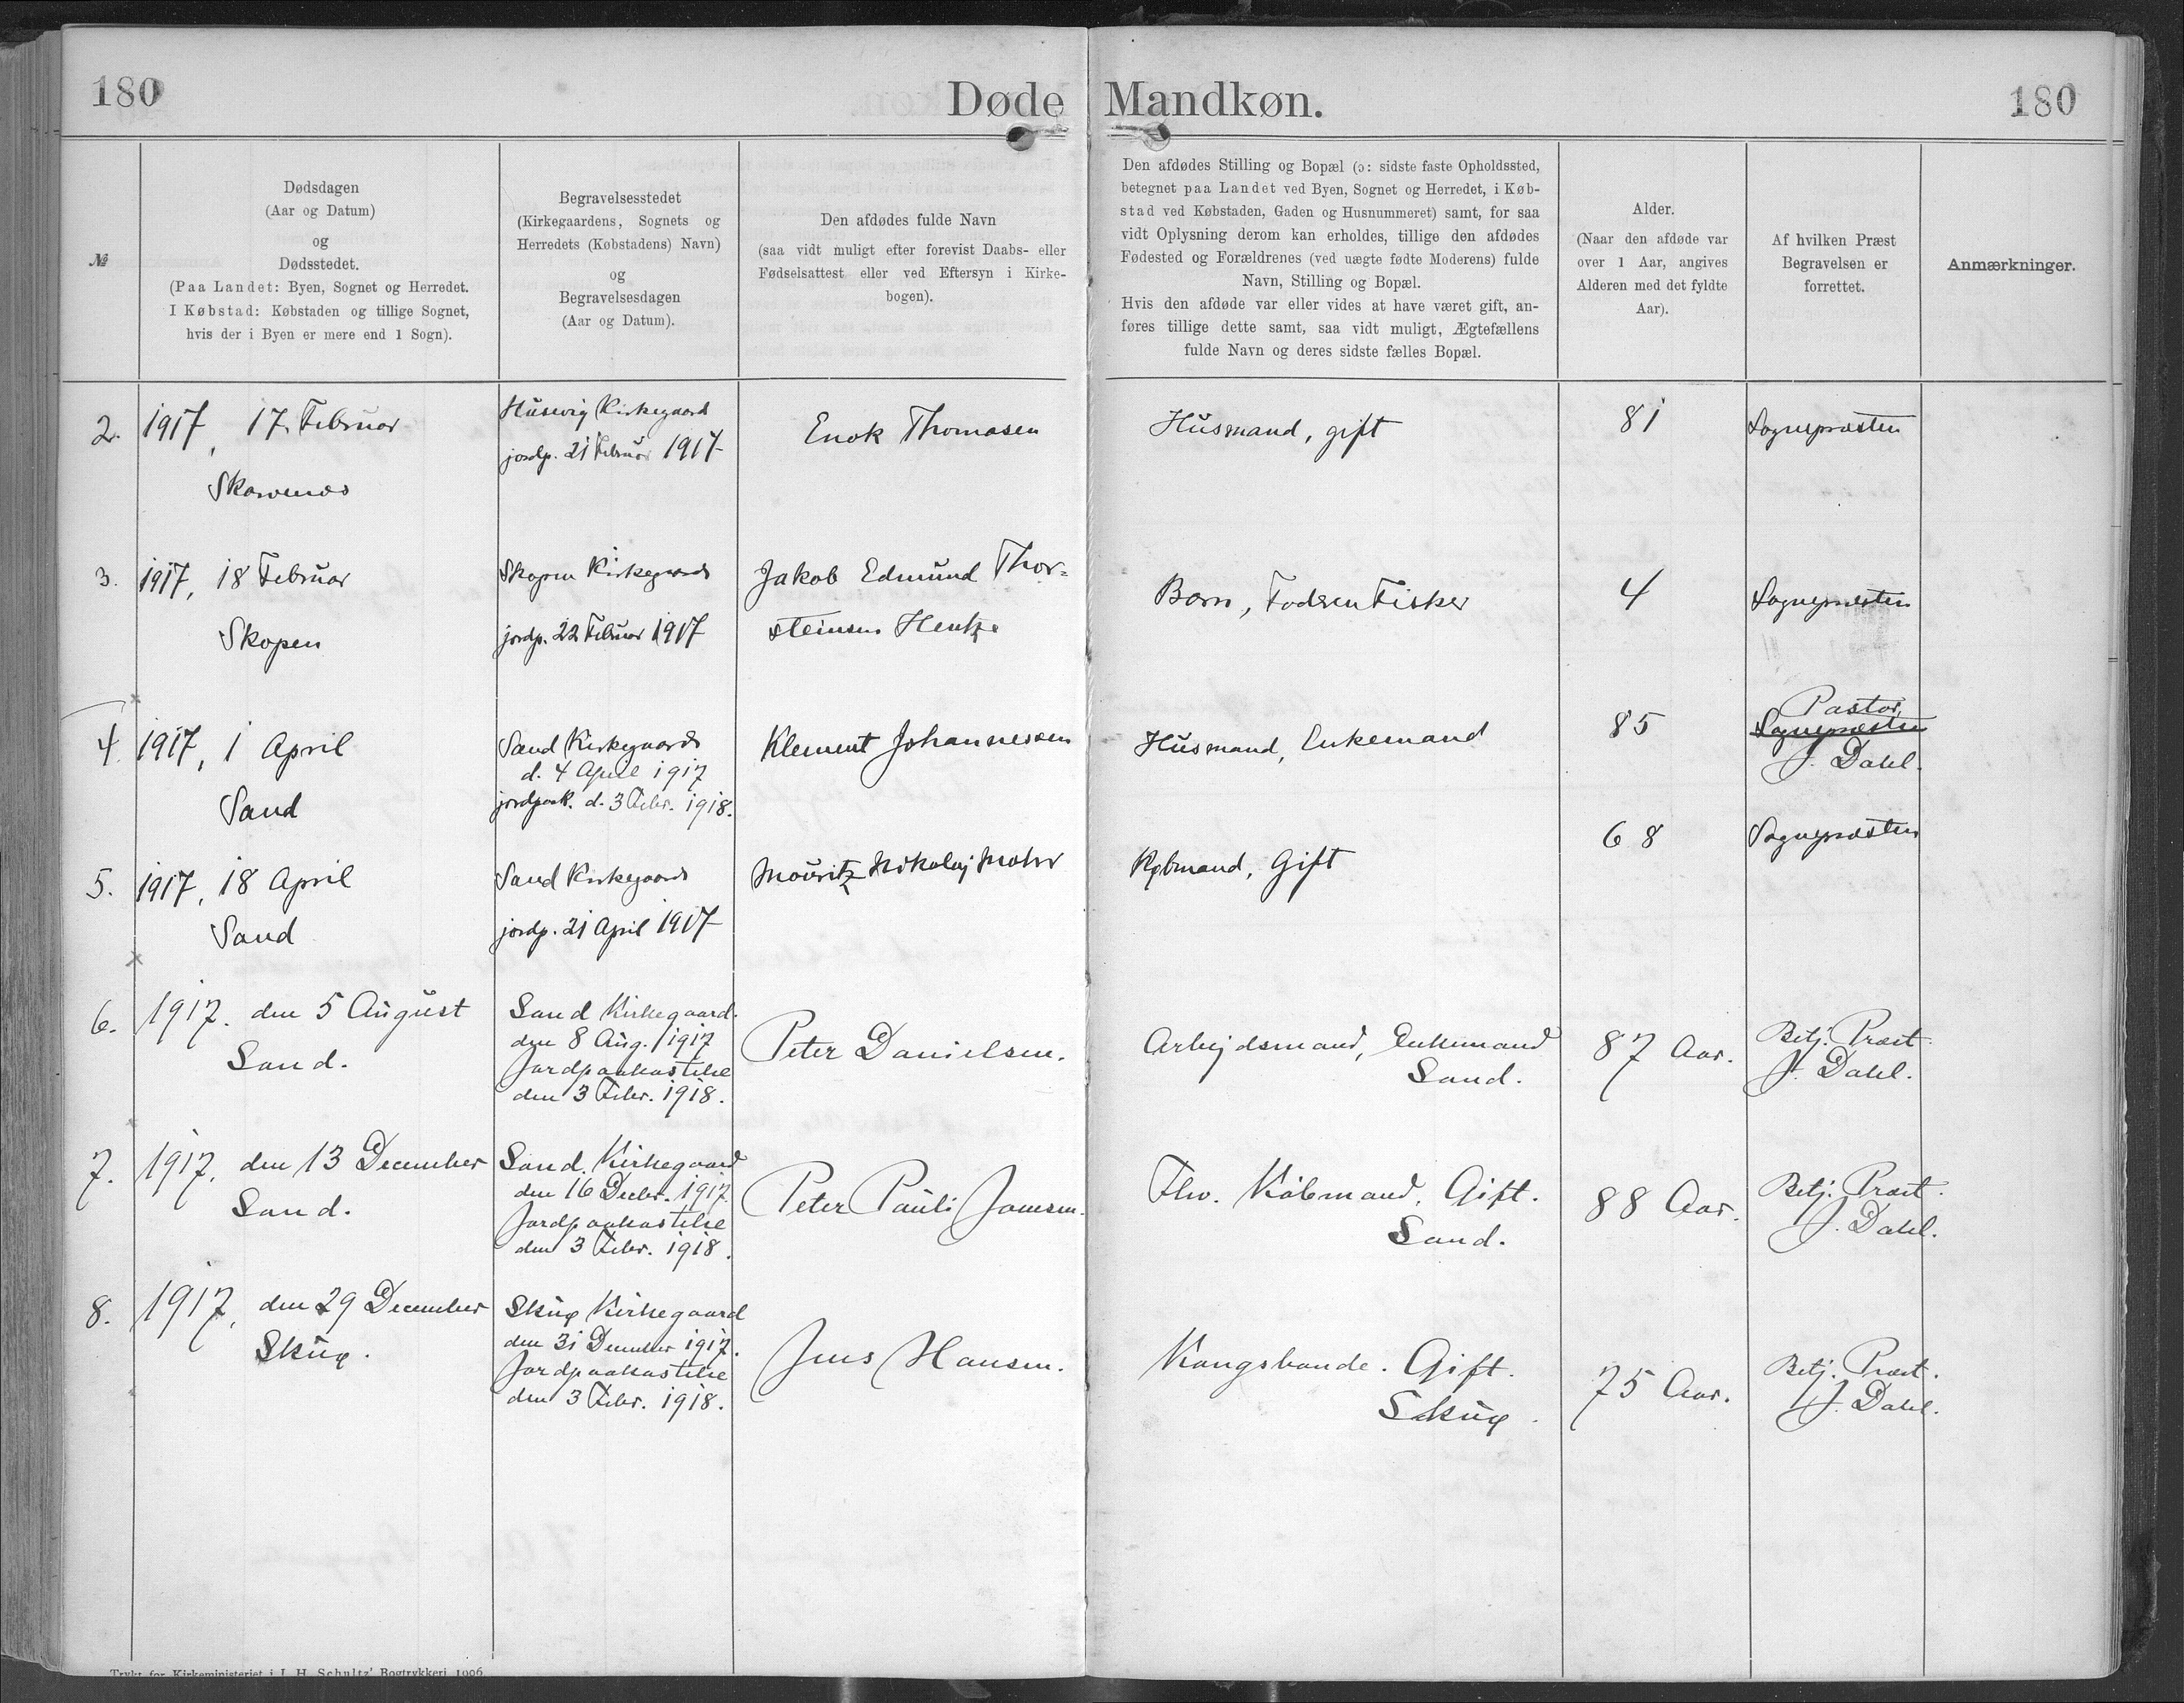 180
Døde Mandkøn.
180
№
Dødsdagen
(Aar og Datum)
og
Dødsstedet.
(Paa Landet: Byen, Sognet og Herredet.
I Købstad: Købstaden og tillige Sognet,
hvis der i Byen er mere end 1 Sogn).
Begravelsesstedet
(Kirkegaardens, Sognets og
Herredets (Købstadens) Navn)
og
Begravelsesdagen
(Aar og Datum).
Den afdødes fulde Navn
(saa vidt muligt efter forevist Daabs- eller
Fødselsattest eller ved Eftersyn i Kirke-
bogen).
Den afdødes Stilling og Bopæl (ɔ: sidste faste Opholdssted,
betegnet paa Landet ved Byen, Sognet og Herredet, i Køb-
stad ved Købstaden, Gaden og Husnummeret) samt, for saa
vidt Oplysning derom kan erholdes, tillige den afdødes
Fødested og Forældrenes (ved uægte fødte Moderens) fulde
Navn, Stilling og Bopæl.
Hvis den afdøde var eller vides at have været gift, an-
føres tillige dette samt, saa vidt muligt, Ægtefællens
fulde Navn og deres sidste fælles Bopæl.
Alder.
(Naar den afdøde var
over 1 Aar, angives
Alderen med det fyldte
Aar).
Af hvilken Præst
Begravelsen er
forrettet.
Anmærkninger.
2.
1917, 17. Februar
Skarvenes
Husevig Kirkegaard
jordp. 21 Februar 1917
Enok Thomasen
Husmand, gift
81
Sognepræsten
3.
1917, 18 Februar
Skopen
Skopen Kirkegaard
jordp. 22 Februar 1917
Jakob Edmund Thor=
steinsen Hentze
Barn, Faderen Fisker
4
Sognepræsten
4.
1917, 1 April
Sand
Sand Kirkegaard
d. 4 April 1917
jordpaak. d. 3 Febr. 1918.
Klement Johannessen
Husmand, Enkemand
85
Pastor
Sognepræsten
J. Dahl.
5.
1917, 18 April
Sand
Sand Kirkegaard
jordp. 21 April 1917
Mouritz Nikolaj Mohr
Købmand, Gift
68
Sognepræsten
6.
1917. den 5 August
Sand.
Sand Kirkegaard.
den 8 Aug. 1917
Jordpaakastelse
den 3 Febr. 1918.
Peter Danielsen.
Arbejdsmand, Enkemand
Sand.
87 Aar.
Betj. Præst.
J. Dahl.
7.
1917. den 13 December
Sand.
Sand. Kirkegaard
den 16 Decbr. 1917.
Jordpaakastelse
den 3 Febr. 1918.
Peter Pauli Joensen.
Fhv. Købmand. Gift.
Sand.
88 Aar.
Betj. Præst.
J. Dahl.
8.
1917, den 29 December
Skuø.
Skuø Kirkegaard
den 31 December 1917.
Jordpaakastelse
den 3 Febr. 1918.
Jens Hansen.
Kongsbonde. Gift.
Skuø.
75 Aar.
Betj. Præst.
J. Dahl.
Trykt for Kirkeministeriet i J. H. Schultz' Bogtrykkeri 1906.